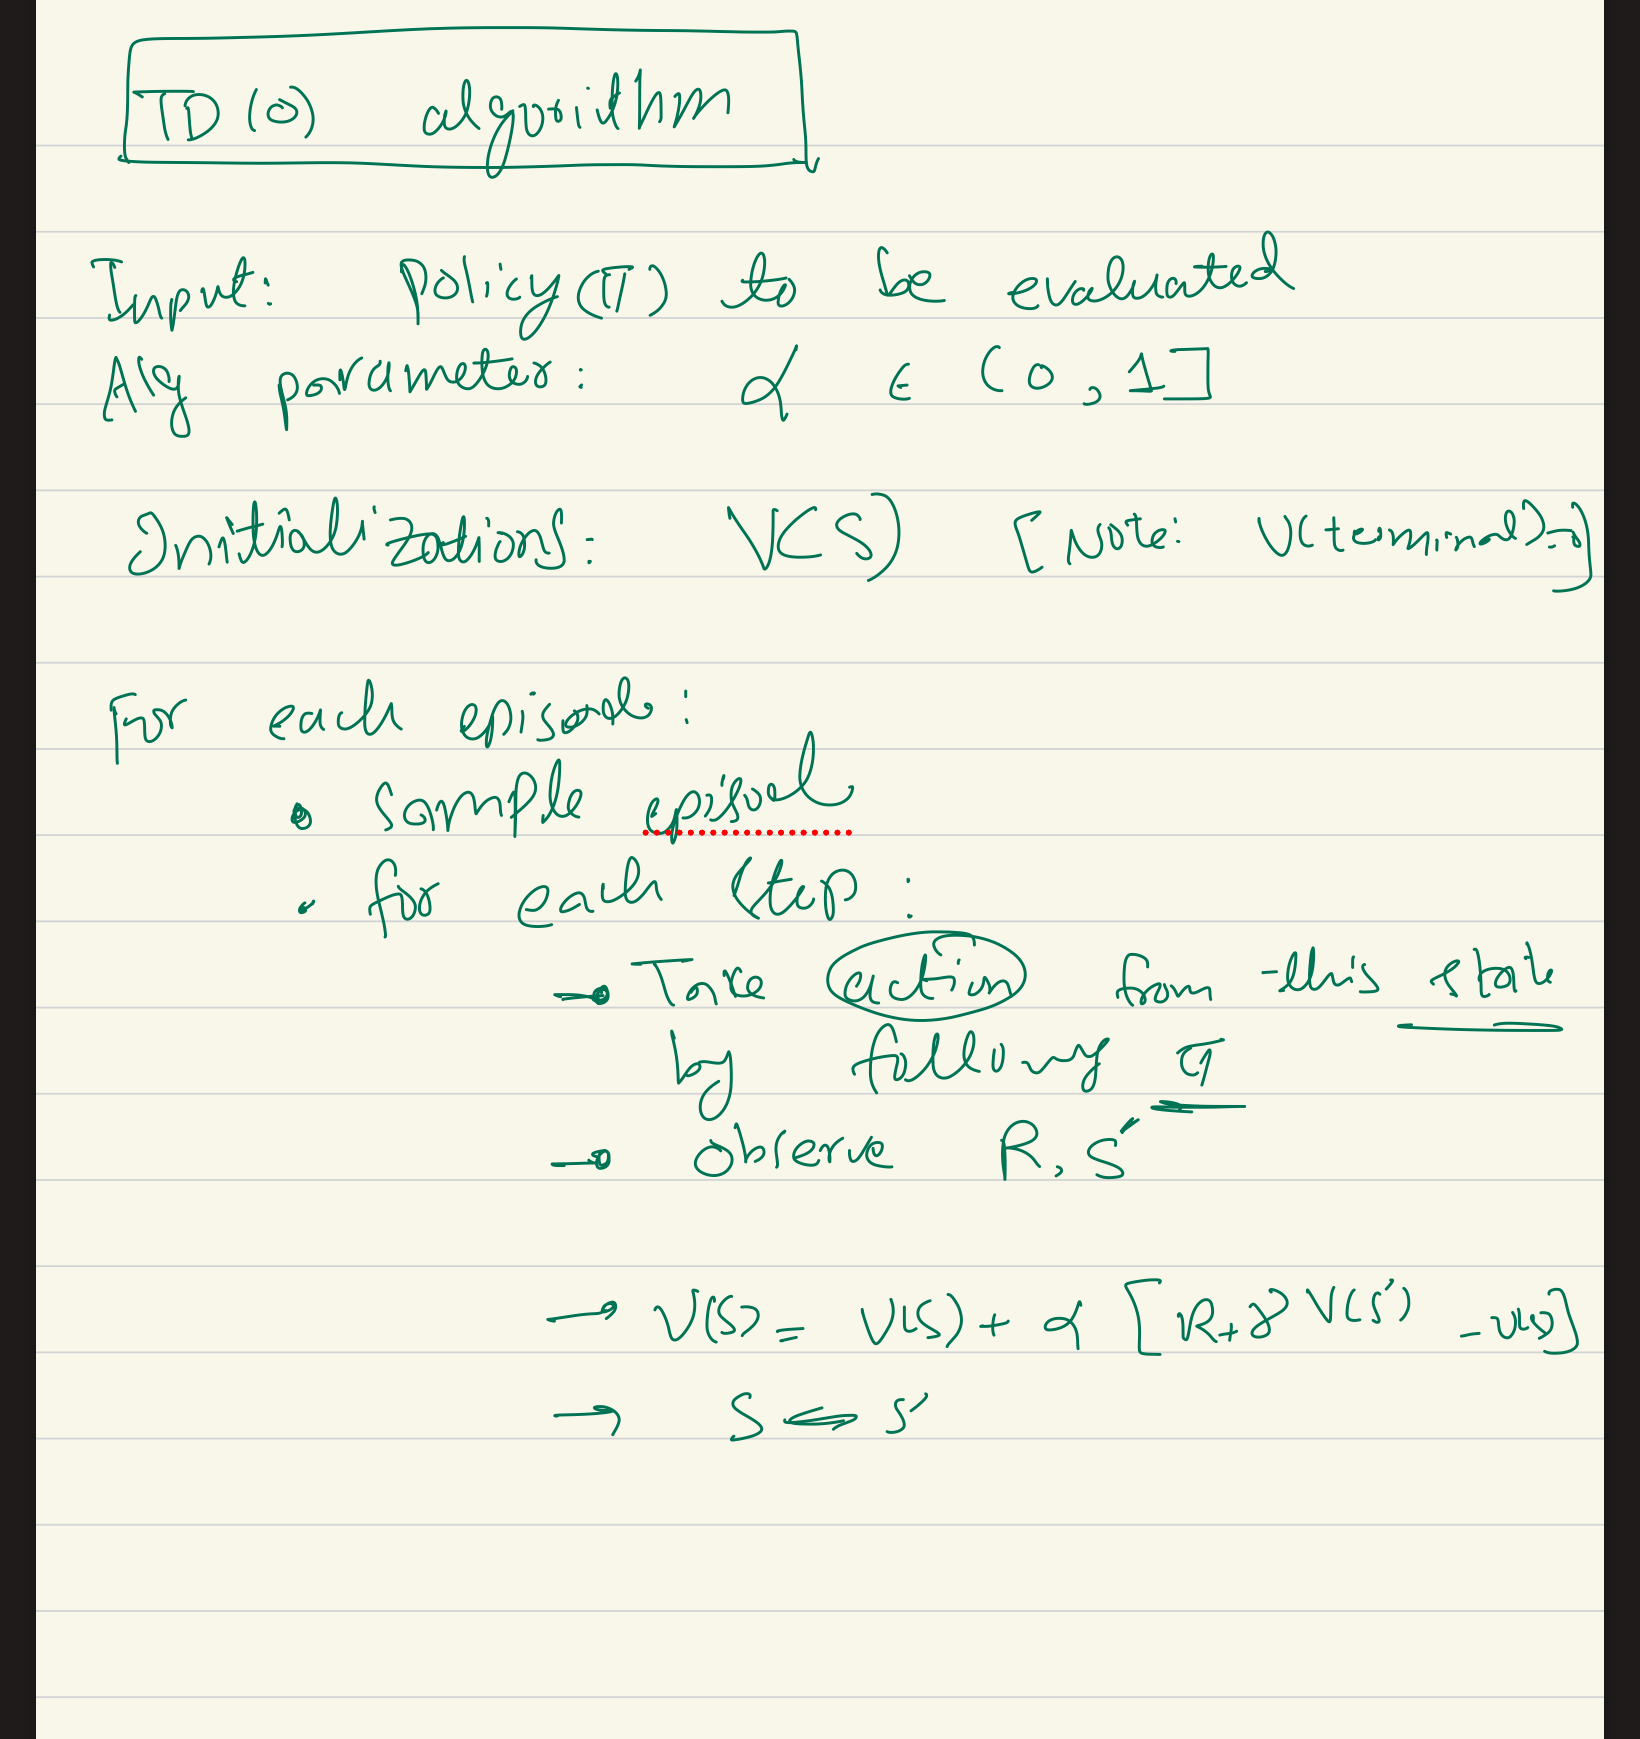 TD(0) algorithm
Input: Policy(π) to be evaluated
Alg parameter: α ∈ (0,1]
Initializations: V(S) [Note: V(terminal)=0]
For each episode:
• sample episod
• for each step:
→ Take action from this state
by following π
→ observe R, S'
→ V(S) = V(S) + α [R+γV(S') -V(S)]
→ S ⇐ S'